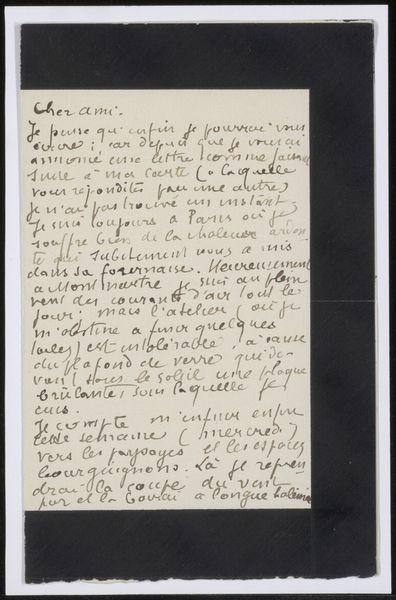 Cher ami.
Je pense qu'enfin je pourrai vous
écrire ; car depuis que je vous ai
annoncé une lettre comme faisant
suite à ma carte (à laquelle
vous répondîtes par une autre)
je n'ai pas trouvé un instant.
Je suis toujours à Paris où je
souffre bien de la chaleur arden-
te qui subitement nous a mis
dans sa fournaise. Heureusement
à Montmartre je suis au plein
vent des courants d'air tout le
jour ; mais l'atelier (où je
m'obstine à finir quelques
toiles) est intolérable, à cause
du plafond de verre qui de-
vient sous le soleil une plaque
brûlante, sous laquelle je
cuis.
Je compte m'enfuir enfin
cette semaine (mercredi)
vers les paysages et les espaces
bourguignons. Là je repren-
drai la coupe du vent
pur et la boirai à longue haleine